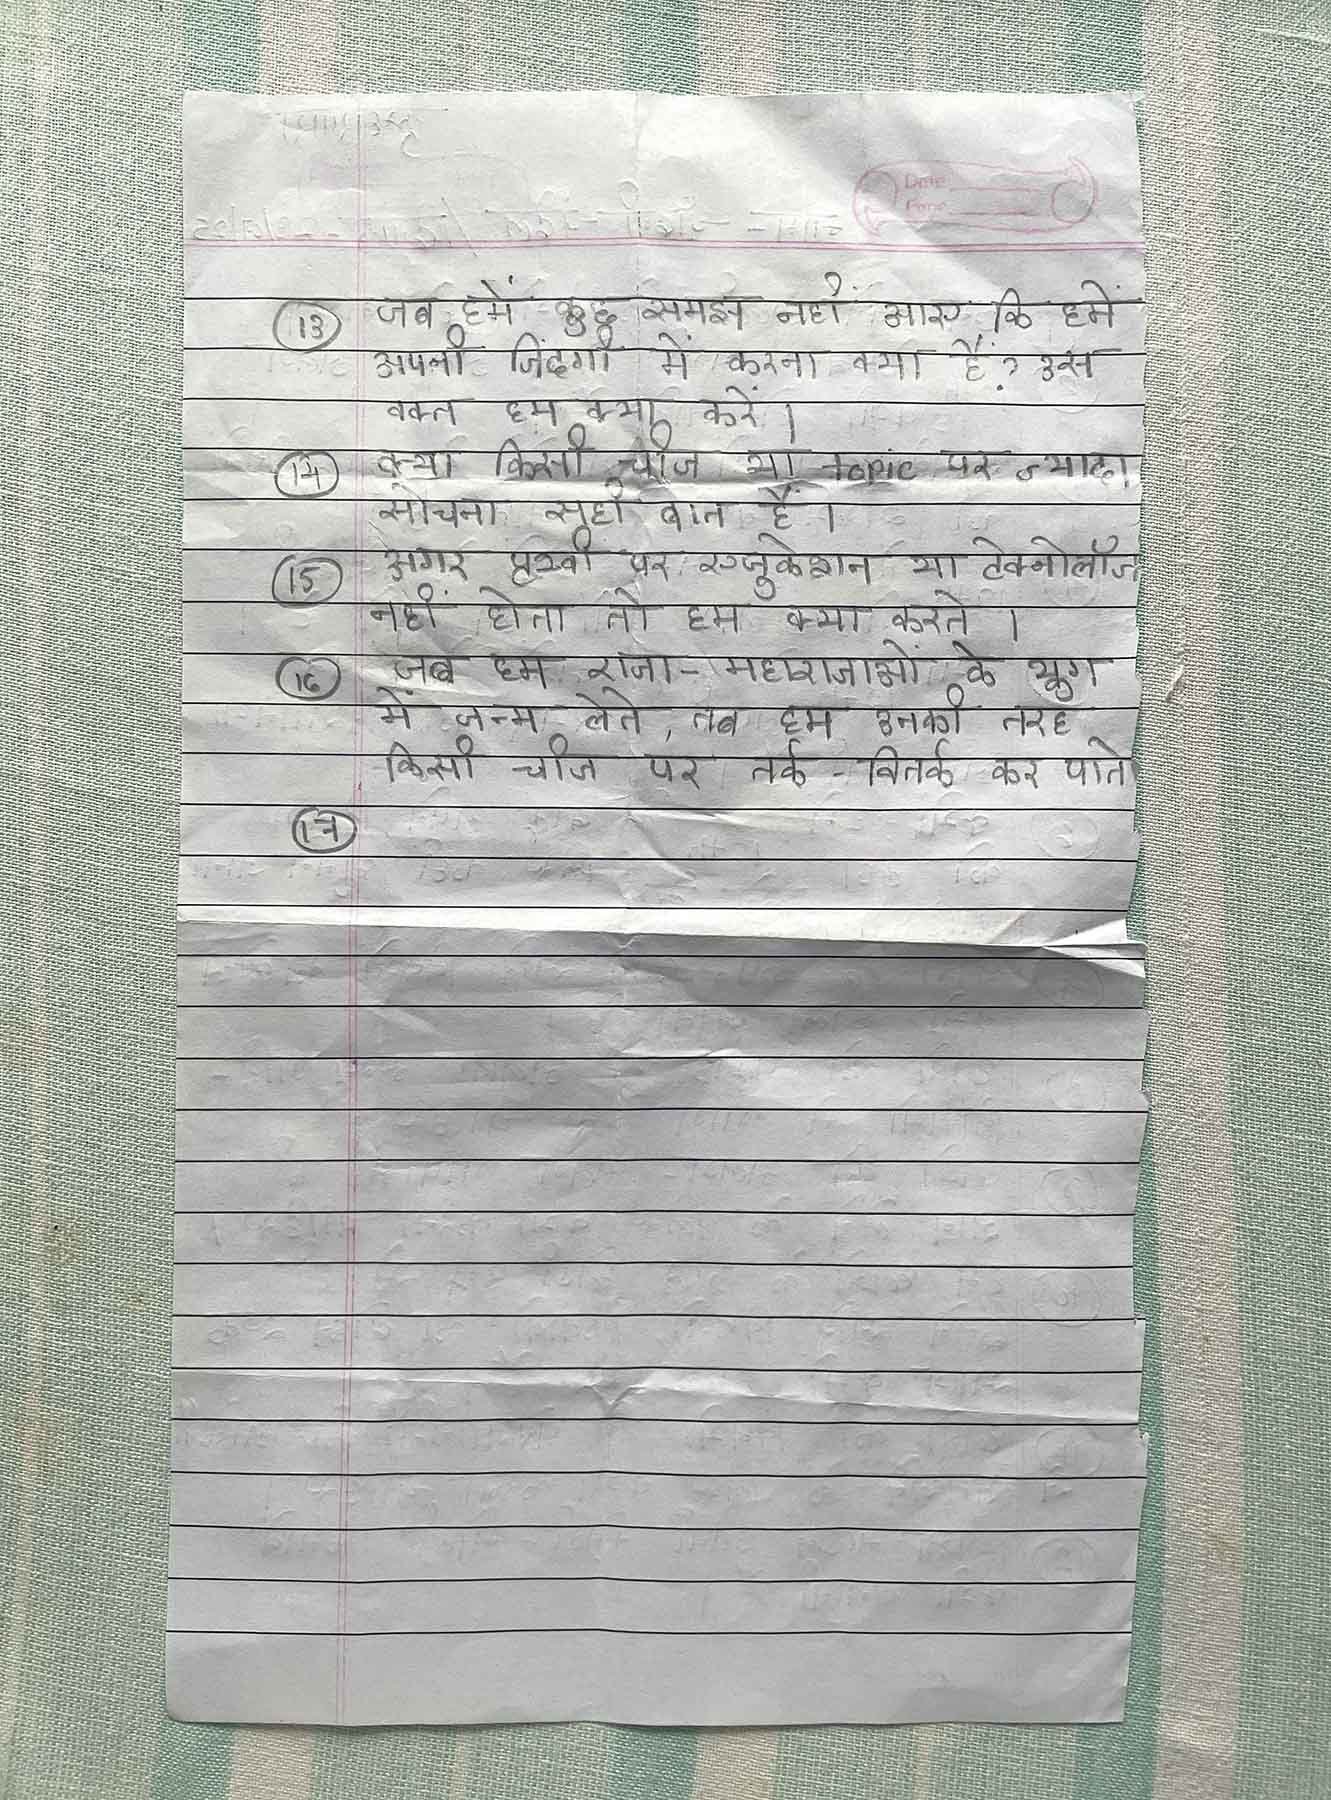 Date
Page
13 जब हमें कुछ समझ नहीं आए कि हमें
अपनी जिंदगी में करना क्या हैं? उस
वक्त हम क्या करें।
14 क्या किसी चीज या topic पर ज्यादा
सोचना सही बात हैं।
15 अगर पृथ्वी पर एज्जुकेशन या टेक्नोलॉजी
नहीं होता तो हम क्या करते।
16 जब हम राजा-महाराजाओं के युग
में जन्म लेते, तब हम उनकी तरह
किसी चीज पर तर्क-वितर्क कर पाते
17